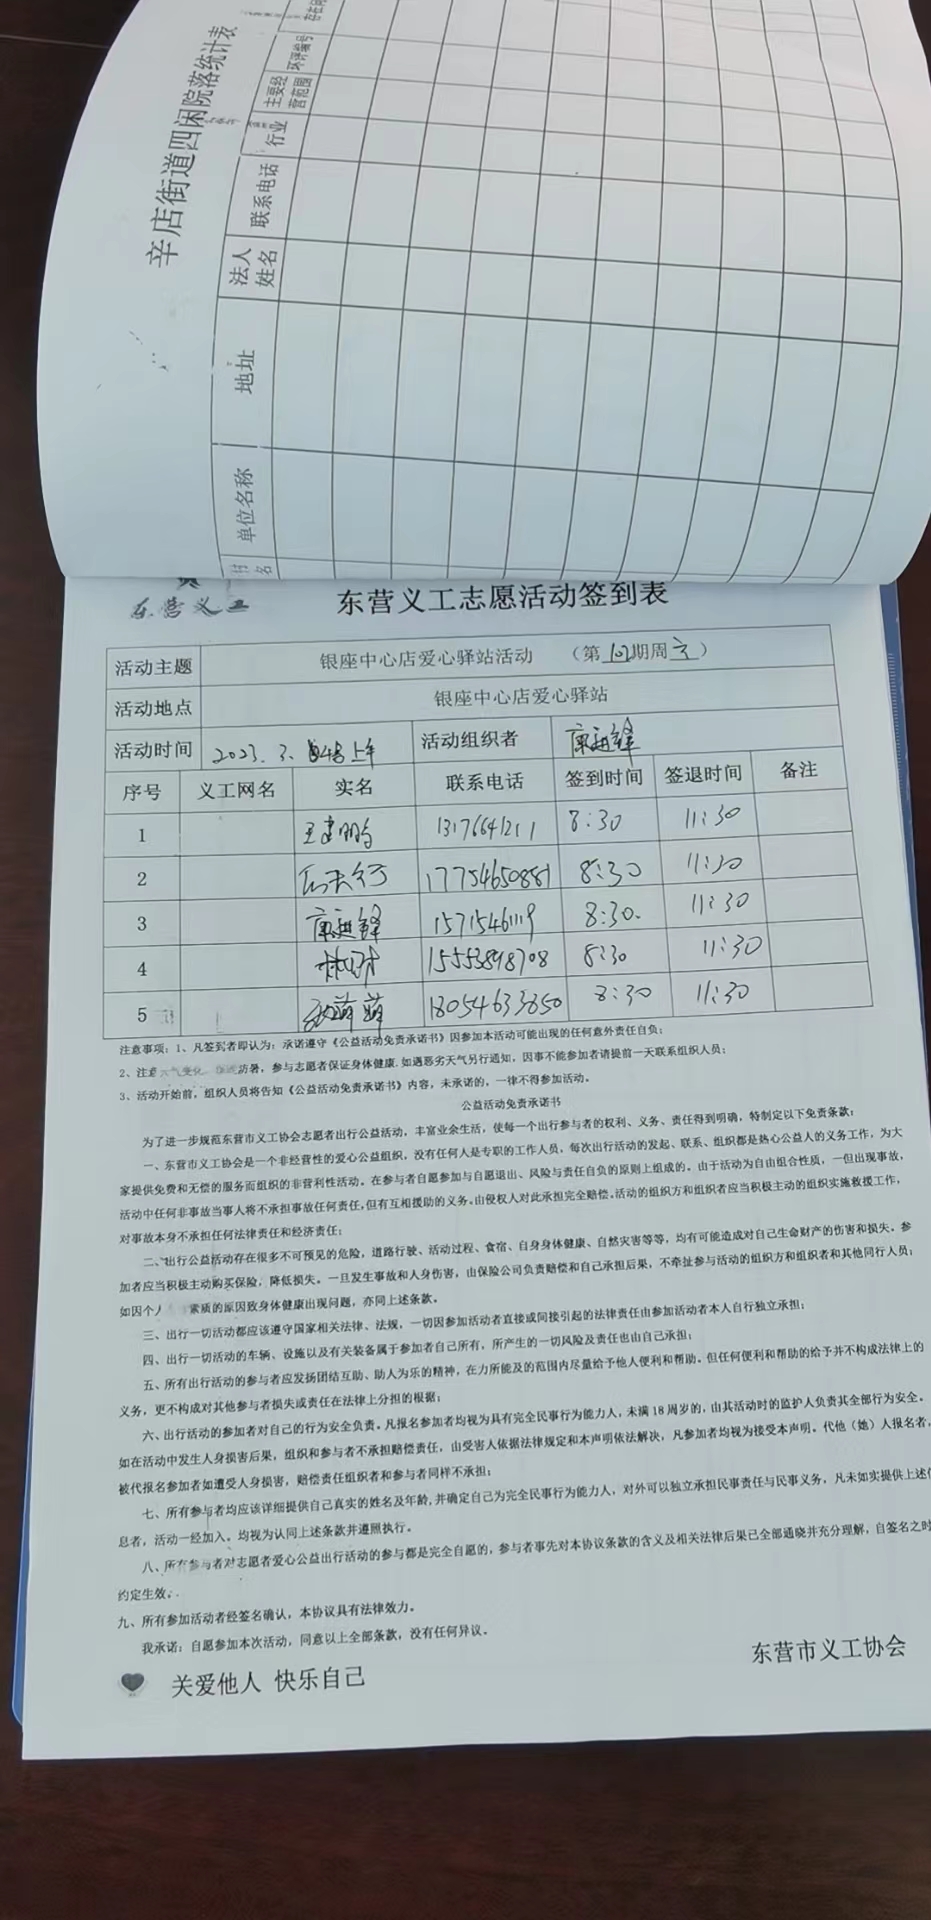 辛店街道四闲院落统计表
单位名称
地址
法人姓名
联系电话
行业
主要经营范围
环评编号
东营义工
东营义工志愿活动签到表
活动主题 银座中心店爱心驿站活动 （第 期周六）
活动地点 银座中心店爱心驿站
活动时间 2023.3. 上午 活动组织者
序号 义工网名 实名 联系电话 签到时间 签退时间 备注
1 王建鹏 13176641211 8:30 11:30
2 17754650881 8:30 11:30
3 15715461119 8:30. 11:30
4 15553898708 8:30 11:30
5 18054633850 8:30 11:30
注意事项：1、凡签到者即认为：承诺遵守《公益活动免责承诺书》因参加本活动可能出现的任何意外责任自负；
2、注意天气变化 防暑，参与志愿者保证身体健康.如遇恶劣天气另行通知，因事不能参加者请提前一天联系组织人员；
3、活动开始前，组织人员将告知《公益活动免责承诺书》内容，未承诺的，一律不得参加活动。
公益活动免责承诺书
为了进一步规范东营市义工协会志愿者出行公益活动，丰富业余生活，使每一个出行参与者的权利、义务、责任得到明确，特制定以下免责条款：
一、东营市义工协会是一个非经营性的爱心公益组织，没有任何人是专职的工作人员，每次出行活动的发起、联系、组织都是热心公益人的义务工作，为大
家提供免费和无偿的服务而组织的非营利性活动。在参与者自愿参加与自愿退出、风险与责任自负的原则上组成的。由于活动为自由组合性质，一但出现事故，
活动中任何非事故当事人将不承担事故任何责任，但有互相援助的义务。由侵权人对此承担完全赔偿。活动的组织方和组织者应当积极主动的组织实施救援工作，
对事故本身不承担任何法律责任和经济责任；
二、出行公益活动存在很多不可预见的危险，道路行驶、活动过程、食宿、自身身体健康、自然灾害等等，均有可能造成对自己生命财产的伤害和损失。参
加者应当积极主动购买保险，降低损失。一旦发生事故和人身伤害，由保险公司负责赔偿和自己承担后果，不牵扯参与活动的组织方和组织者和其他同行人员；
如因个人 素质的原因致身体健康出现问题，亦同上述条款。
三、出行一切活动都应该遵守国家相关法律、法规，一切因参加活动者直接或间接引起的法律责任由参加活动者本人自行独立承担；
四、出行一切活动的车辆、设施以及有关装备属于参加者自己所有，所产生的一切风险及责任也由自己承担；
五、所有出行活动的参与者应发扬团结互助、助人为乐的精神，在力所能及的范围内尽量给予他人便利和帮助。但任何便利和帮助的给予并不构成法律上的
义务，更不构成对其他参与者损失或责任在法律上分担的根据；
六、出行活动的参加者对自己的行为安全负责。凡报名参加者均视为具有完全民事行为能力人，未满18周岁的，由其活动时的监护人负责其全部行为安全。
如在活动中发生人身损害后果，组织和参与者不承担赔偿责任，由受害人依据法律规定和本声明依法解决，凡参加者均视为接受本声明。代他（她）人报名者，
被代报名参加者如遭受人身损害，赔偿责任组织者和参与者同样不承担；
七、所有参与者均应该详细提供自己真实的姓名及年龄,并确定自己为完全民事行为能力人，对外可以独立承担民事责任与民事义务，凡未如实提供上述信
息者，活动一经加入。均视为认同上述条款并遵照执行。
八、所有参与者对志愿者爱心公益出行活动的参与都是完全自愿的，参与者事先对本协议条款的含义及相关法律后果已全部通晓并充分理解，自签名之时
约定生效。
九、所有参加活动者经签名确认，本协议具有法律效力。
我承诺：自愿参加本次活动，同意以上全部条款，没有任何异议。
关爱他人 快乐自己
东营市义工协会